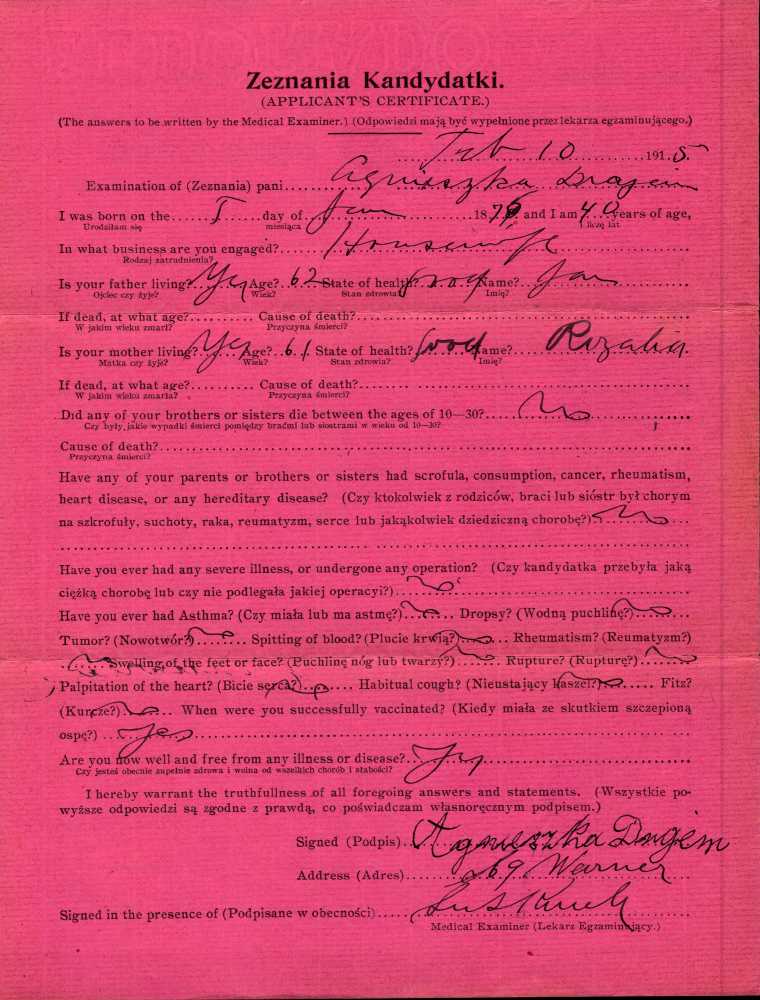 Zeznania Kandydatki.
(APPLICANT'S CERTIFICATE.)
(The answers to be written by the Medical Examiner.) (Odpowiedzi mają być wypełnione przez lekarza egzaminującego.)
Feb 10 1915.
Examination of (Zeznania) pani Agnieszka
I was born on the 1 day of Jan 187 and I am 40 years of age,
Urodziłam się miesiąca liczę lat
In what business are you engaged? Housewife
Rodzaj zatrudnienia?
Is your father living? Yes Age? 62 State of health? Good Name? Jan
Ojciec czy żyje? Wiek? Stan zdrowia? Imię?
If dead, at what age? Cause of death?
W jakim wieku zmarł? Przyczyna śmierci?
Is your mother living? Yes Age? 61 State of health? Good Name? Rozalia
Matka czy żyje? Wiek? Stan zdrowia? Imię?
If dead, at what age? Cause of death?
W jakim wieku zmarła? Przyczyna śmierci?
Did any of your brothers or sisters die between the ages of 10—30? No
Czy były jakie wypadki śmierci pomiędzy braćmi lub siostrami w wieku od 10—30?
Cause of death?
Przyczyna śmierci?
Have any of your parents or brothers or sisters had scrofula, consumption, cancer, rheumatism,
heart disease, or any hereditary disease? (Czy ktokolwiek z rodziców, braci lub sióstr był chorym
na szkrofuły, suchoty, raka, reumatyzm, serce lub jakąkolwiek dziedziczną chorobę?) No
Have you ever had any severe illness, or undergone any operation? (Czy kandydatka przebyła jaką
ciężką chorobę lub czy nie podlegała jakiej operacyi?) No
Have you ever had Asthma? (Czy miała lub ma astmę?) No Dropsy? (Wodną puchlinę?) No
Tumor? (Nowotwór?) No Spitting of blood? (Plucie krwią?) No Rheumatism? (Reumatyzm?)
No Swelling of the feet or face? (Puchlinę nóg lub twarzy?) No Rupture? (Rupturę?) No
Palpitation of the heart? (Bicie serca?) No Habitual cough? (Nieustający kaszel?) No Fitz?
(Kurcze?) No When were you successfully vaccinated? (Kiedy miała ze skutkiem szczepioną
ospę?) Yes
Are you now well and free from any illness or disease? Yes
Czy jesteś obecnie zupełnie zdrowa i wolna od wszelkich chorób i słabości?
I hereby warrant the truthfullness of all foregoing answers and statements. (Wszystkie po-
wyższe odpowiedzi są zgodne z prawdą, co poświadczam własnoręcznym podpisem.)
Signed (Podpis) Agnieszka
Address (Adres) 269 Warner
Signed in the presence of (Podpisane w obecności)
Medical Examiner (Lekarz Egzaminujący.)